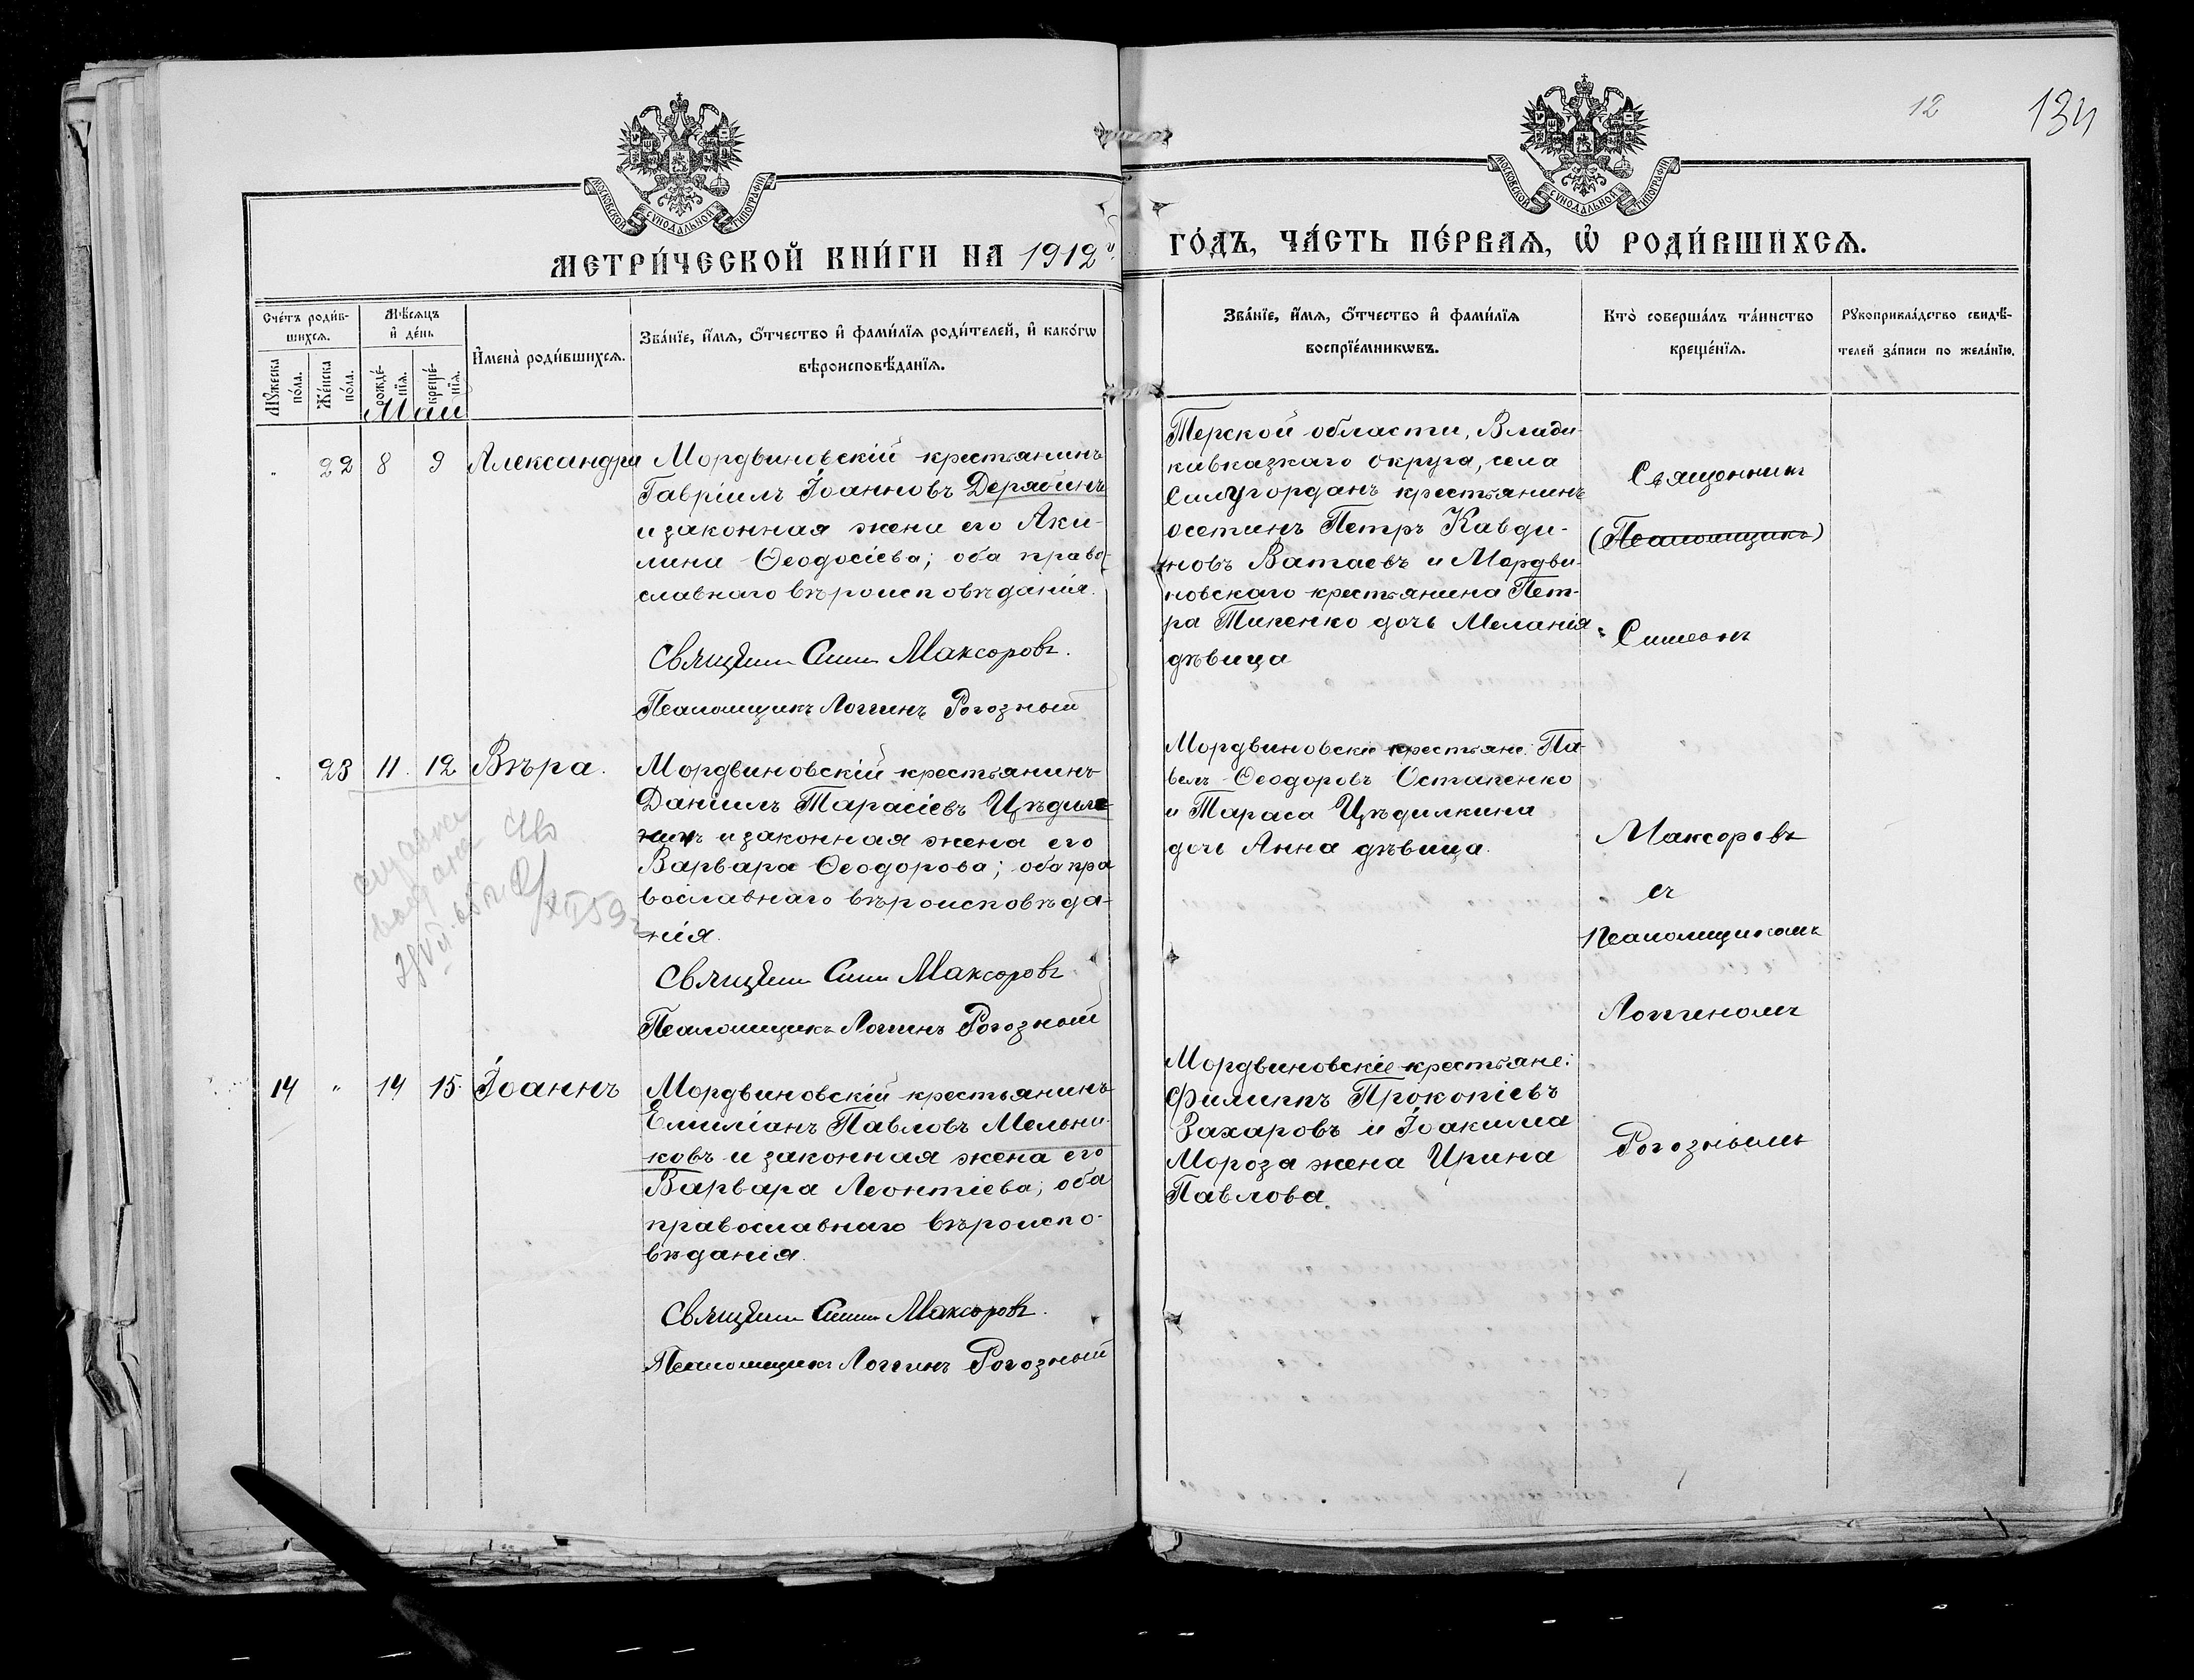 12
134
МОСКОВСКОЙ СѴНОДАЛЬНОЙ ТИПОГРАФІИ
МОСКОВСКОЙ СѴНОДАЛЬНОЙ ТИПОГРАФІИ
МЕТРИ́ЧЕСКОЙ КНИ́ГИ НА 1912й
ГО́ДЪ, ЧА́СТЬ ПЕ́РВАЯ, Ѽ РОДИ́ВШИХСЯ.
Сче́тъ роди́в-
шихся.
Мꙋ́жеска
по́ла.
Же́нска
по́ла.
Мѣ́сяцъ
и҆ де́нь
рожде́-
нїя.
креще́-
нїя.
И҆мена̀ роди́вшихся.
Зва́нїе, и҆́мя, ѻ҆́тчество и҆ фами́лїя роди́телей, и҆ како́гѡ
вѣроисповѣ́данїя.
Зва́нїе, и҆́мя, ѻ҆́тчество и҆ фами́лїя
воспрїе́мникѡвъ.
Кто̀ соверша́лъ та́инство
креще́нїя.
Рꙋкоприкла́дство свидѣ́-
телей за́писи по жела́нїю.
Май
" 22 8 9 Александра
Мордвиновскій крестьянинъ
Гавріилъ Іоанновъ Дерябинъ
и законная жена его Аки-
лина Ѳеодосіева; оба право-
славнаго вѣроисповѣданія.
Священ Сим Максоровъ.
Псаломщикъ Логгинъ Рогозный
Терской области, Влади-
кавказкаго округа, села
крестьянинъ
осетинъ Петръ Кавди-
новъ Ватаевъ и Мордви-
новскаго крестьянина Пет-
ра Тикенко дочь Меланія
дѣвица
" 23 11 12 Вѣра.
Мордвиновскій крестьянинъ
Даніилъ Тарасіевъ Цѣдил-
кинъ и законная жена его
Варвара Ѳеодорова; оба пра
вославнаго вѣроисповѣда-
нія.
Священ Сим Максоровъ
Псаломщикъ Логгинъ Рогозный
Мордвиновскіе крестьяне: Па-
велъ Ѳеодоровъ Остапенко
и Тараса Цѣдилкина
дочь Анна дѣвица.
14 " 14 15 Іоаннъ
Мордвиновскій крестьянинъ
Емиліанъ Павловъ Мельни-
ковъ и законная жена его
Варвара Леонтіева; оба
православнаго вѣроиспо-
вѣданія.
Священ Сим Максоровъ.
Псаломщикъ Логгинъ Рогозный
Мордвиновскіе крестьяне:
Филиппъ Прокопіевъ
Захаровъ и Іоакима
Мороза жена Ирина
Павлова.
Священникъ
(Псаломщикъ)
Симеонъ
Максоровъ
съ
Псаломщикомъ
Логгиномъ
Рогознымъ